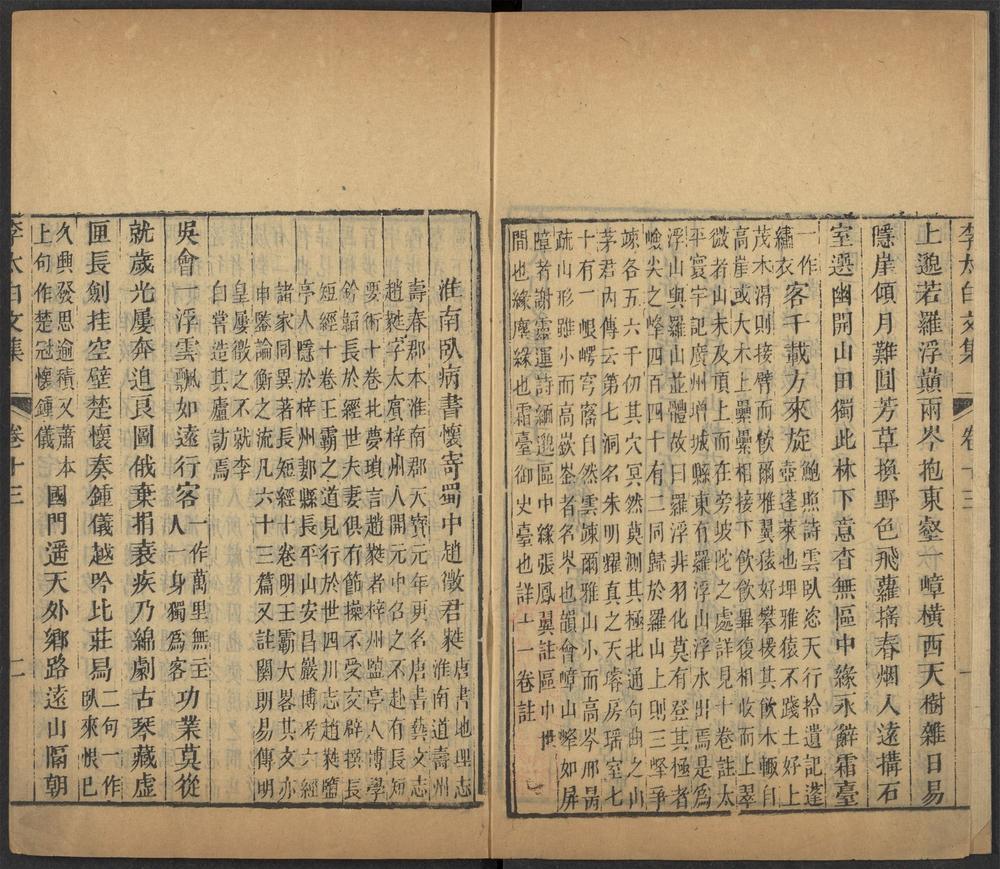 李太白文集 卷十三 一
上邈若羅浮巔兩岑抱東壑一嶂橫西天樹雜日易
隱崖傾月難圓芳草換野色飛蘿搖春烟人遠搆石
室選幽開山田獨此林下意杳無區中緣永辭霜臺
一作
繡衣
客千載方來旋
鮑照詩雲臥恣天行拾遺記蓬
壺蓬萊也埤雅猿不踐土好上
茂木渴則接臂而飲爾雅翼猿好攀援其飲水輙自
高崖或大木上纍纍相接下飲飲畢復相收而上翠
微者山未及頂上而在旁坡陀之處詳見十卷註太
平寰宇記廣州增城縣東有羅浮山浮水出焉是為
浮山與羅山並體故曰羅浮非羽化莫有登其極者
嶮尖之峰四百四十有二同歸於羅山上則三峰爭
竦各五六千仞其穴冥然莫測其極北通句曲之山
茅君內傳云第七洞名朱明耀真之天璿房瑤室七
十有一崿穹窿自然雲竦爾雅山小而高岑邢昺
疏山形雖小而高嶔崟者名岑也韻會嶂山峰如屏
障者謝靈運詩緬邈區中緣張鳳翼註區中世
間也緣塵緣也霜臺御史臺也詳十一卷註
淮南臥病書懷寄蜀中趙徵君蕤
唐書地理志
淮南道壽州
壽春郡本淮南郡天寶元年更名唐書藝文志
趙蕤字太賓梓州人開元中召之不赴有長短
要術十卷北夢瑣言趙蕤者梓州鹽亭人博學
鈐韜長於經世夫妻俱有節操不受交辟撰長
短經十卷王霸之道見行於世四川志趙蕤鹽
亭人隱於梓州郪縣長平山安昌巖博考六經
諸家同異著長短經十卷明王霸大畧其文亦
申鑒論衡之流凡六十三篇又註關朗易傳明
皇屢徵之不就李
白嘗造其廬訪焉
吳會一浮雲飄如遠行客
一作萬里無主
人一身獨爲客
功業莫從
就歲光屢奔迫良圖俄棄捐衰疾乃綿劇古琴藏虛
匣長劍挂空壁楚懷奏鍾儀越吟比莊舄
二句一作
臥來恨已
久興發思逾積又蕭本
上句作楚冠懷鍾儀
國門遥天外鄉路遠山隔朝
李太白文集 卷十三 二